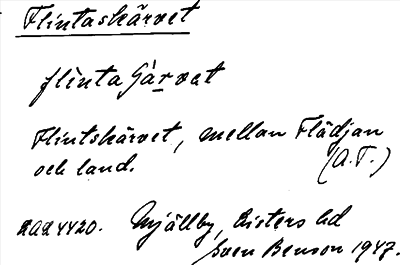 Flintaskärvet
flinta Gàrvat
Flintskärvet, mellan Flädjan
och land. (A.T.)
2024420. Mjällby, Listers hd
Sven Benson 1947.